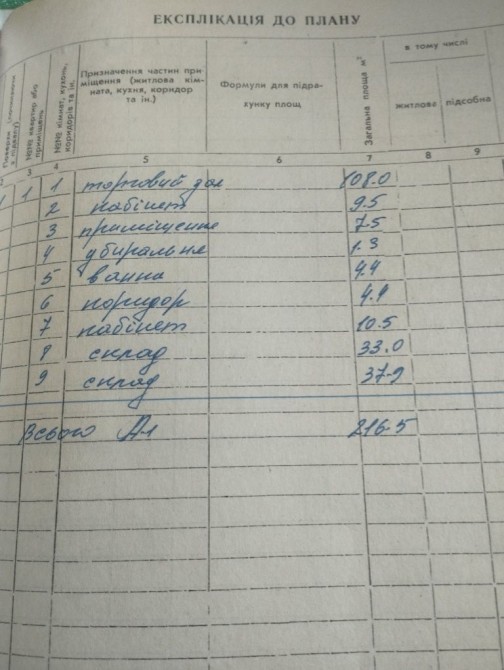 ЕКСПЛІКАЦІЯ ДО ПЛАНУ
№№ квартир або приміщень
№№ кімнат, кухонь, коридорів та ін.
Призначення частин приміщення (житлова кімната, кухня, коридор та ін.)
Формули для підрахунку площ
Загальна площа м²
в тому числі
житлова
підсобна
2 3 4 5 6 7 8 9
1 1 1 торговий зал 108.0
2 кабінет 9.5
3 приміщення 7.5
4 убиральня 1.3
5 ванна 4.4
6 коридор 4.4
7 кабінет 10.5
8 склад 33.0
9 склад 37.9
Всього А1 216.5